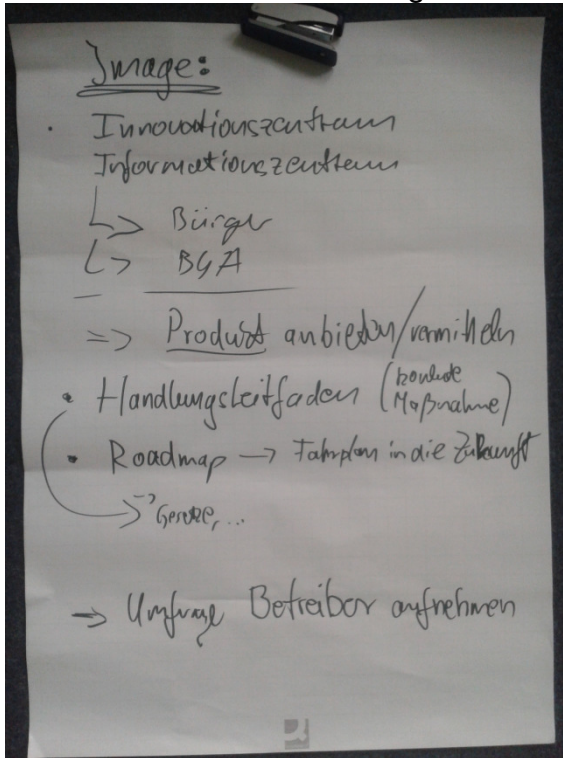 Image:
• Innovationszentrum
Informationszentrum
↳ Bürger
↳ BGA
=> Produkt anbieten/vermitteln
• Handlungsleitfaden (konkrete Maßnahme)
• Roadmap → Fahrplan in die Zukunft
→ Gesetze, ...
→ Umfrage Betreiber aufnehmen